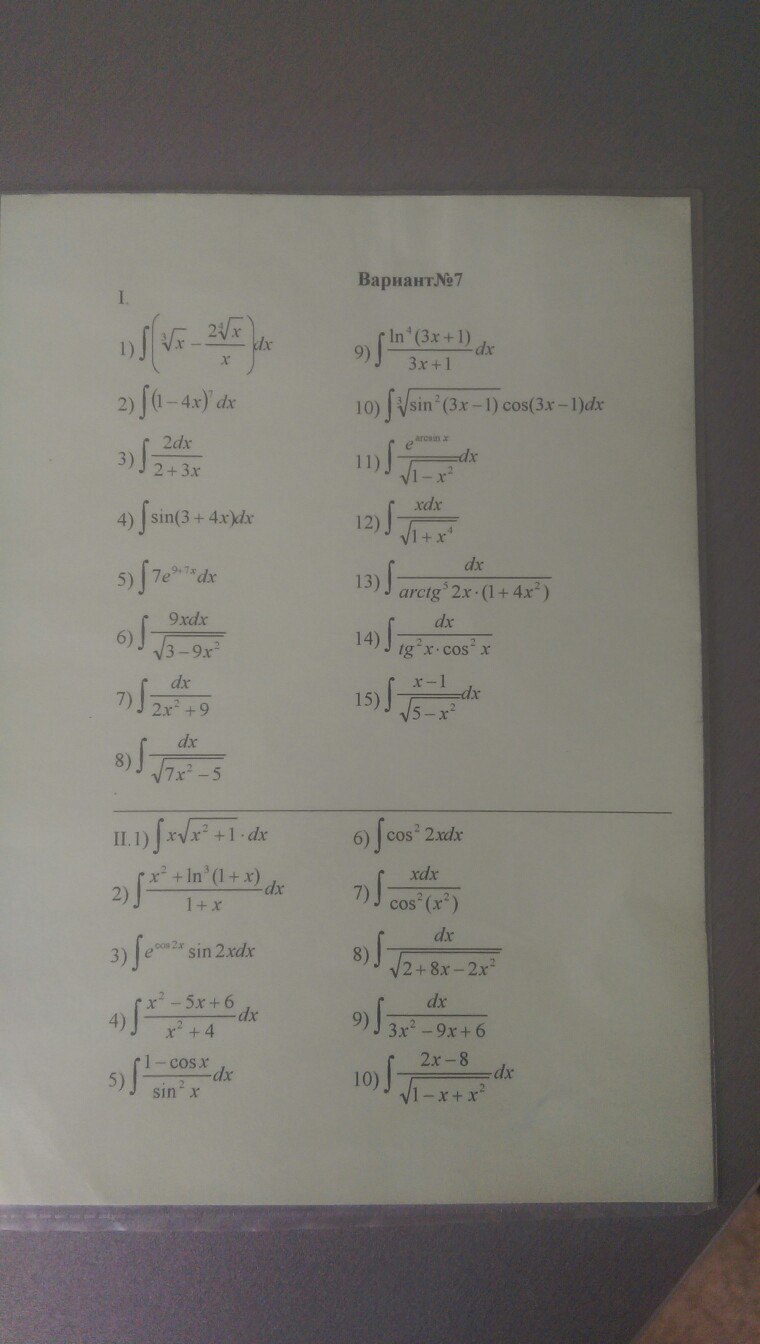 Вариант№7
I.
1) ∫(∛x − 2∜x/x)dx
2) ∫(1−4x)⁷dx
3) ∫2dx/(2+3x)
4) ∫sin(3+4x)dx
5) ∫7e^(9+7x)dx
6) ∫9xdx/√(3−9x²)
7) ∫dx/(2x²+9)
8) ∫dx/√(7x²−5)
9) ∫ln⁴(3x+1)/(3x+1) dx
10) ∫∛(sin²(3x−1)) cos(3x−1)dx
11) ∫e^(arcsin x)/√(1−x²) dx
12) ∫xdx/√(1+x⁴)
13) ∫dx/(arctg⁵2x·(1+4x²))
14) ∫dx/(tg²x·cos²x)
15) ∫(x−1)/√(5−x²) dx
II.1) ∫x√(x²+1)·dx
2) ∫(x²+ln³(1+x))/(1+x) dx
3) ∫e^(cos2x) sin2xdx
4) ∫(x²−5x+6)/(x²+4) dx
5) ∫(1−cosx)/sin²x dx
6) ∫cos²2xdx
7) ∫xdx/cos²(x²)
8) ∫dx/√(2+8x−2x²)
9) ∫dx/(3x²−9x+6)
10) ∫(2x−8)/√(1−x+x²) dx